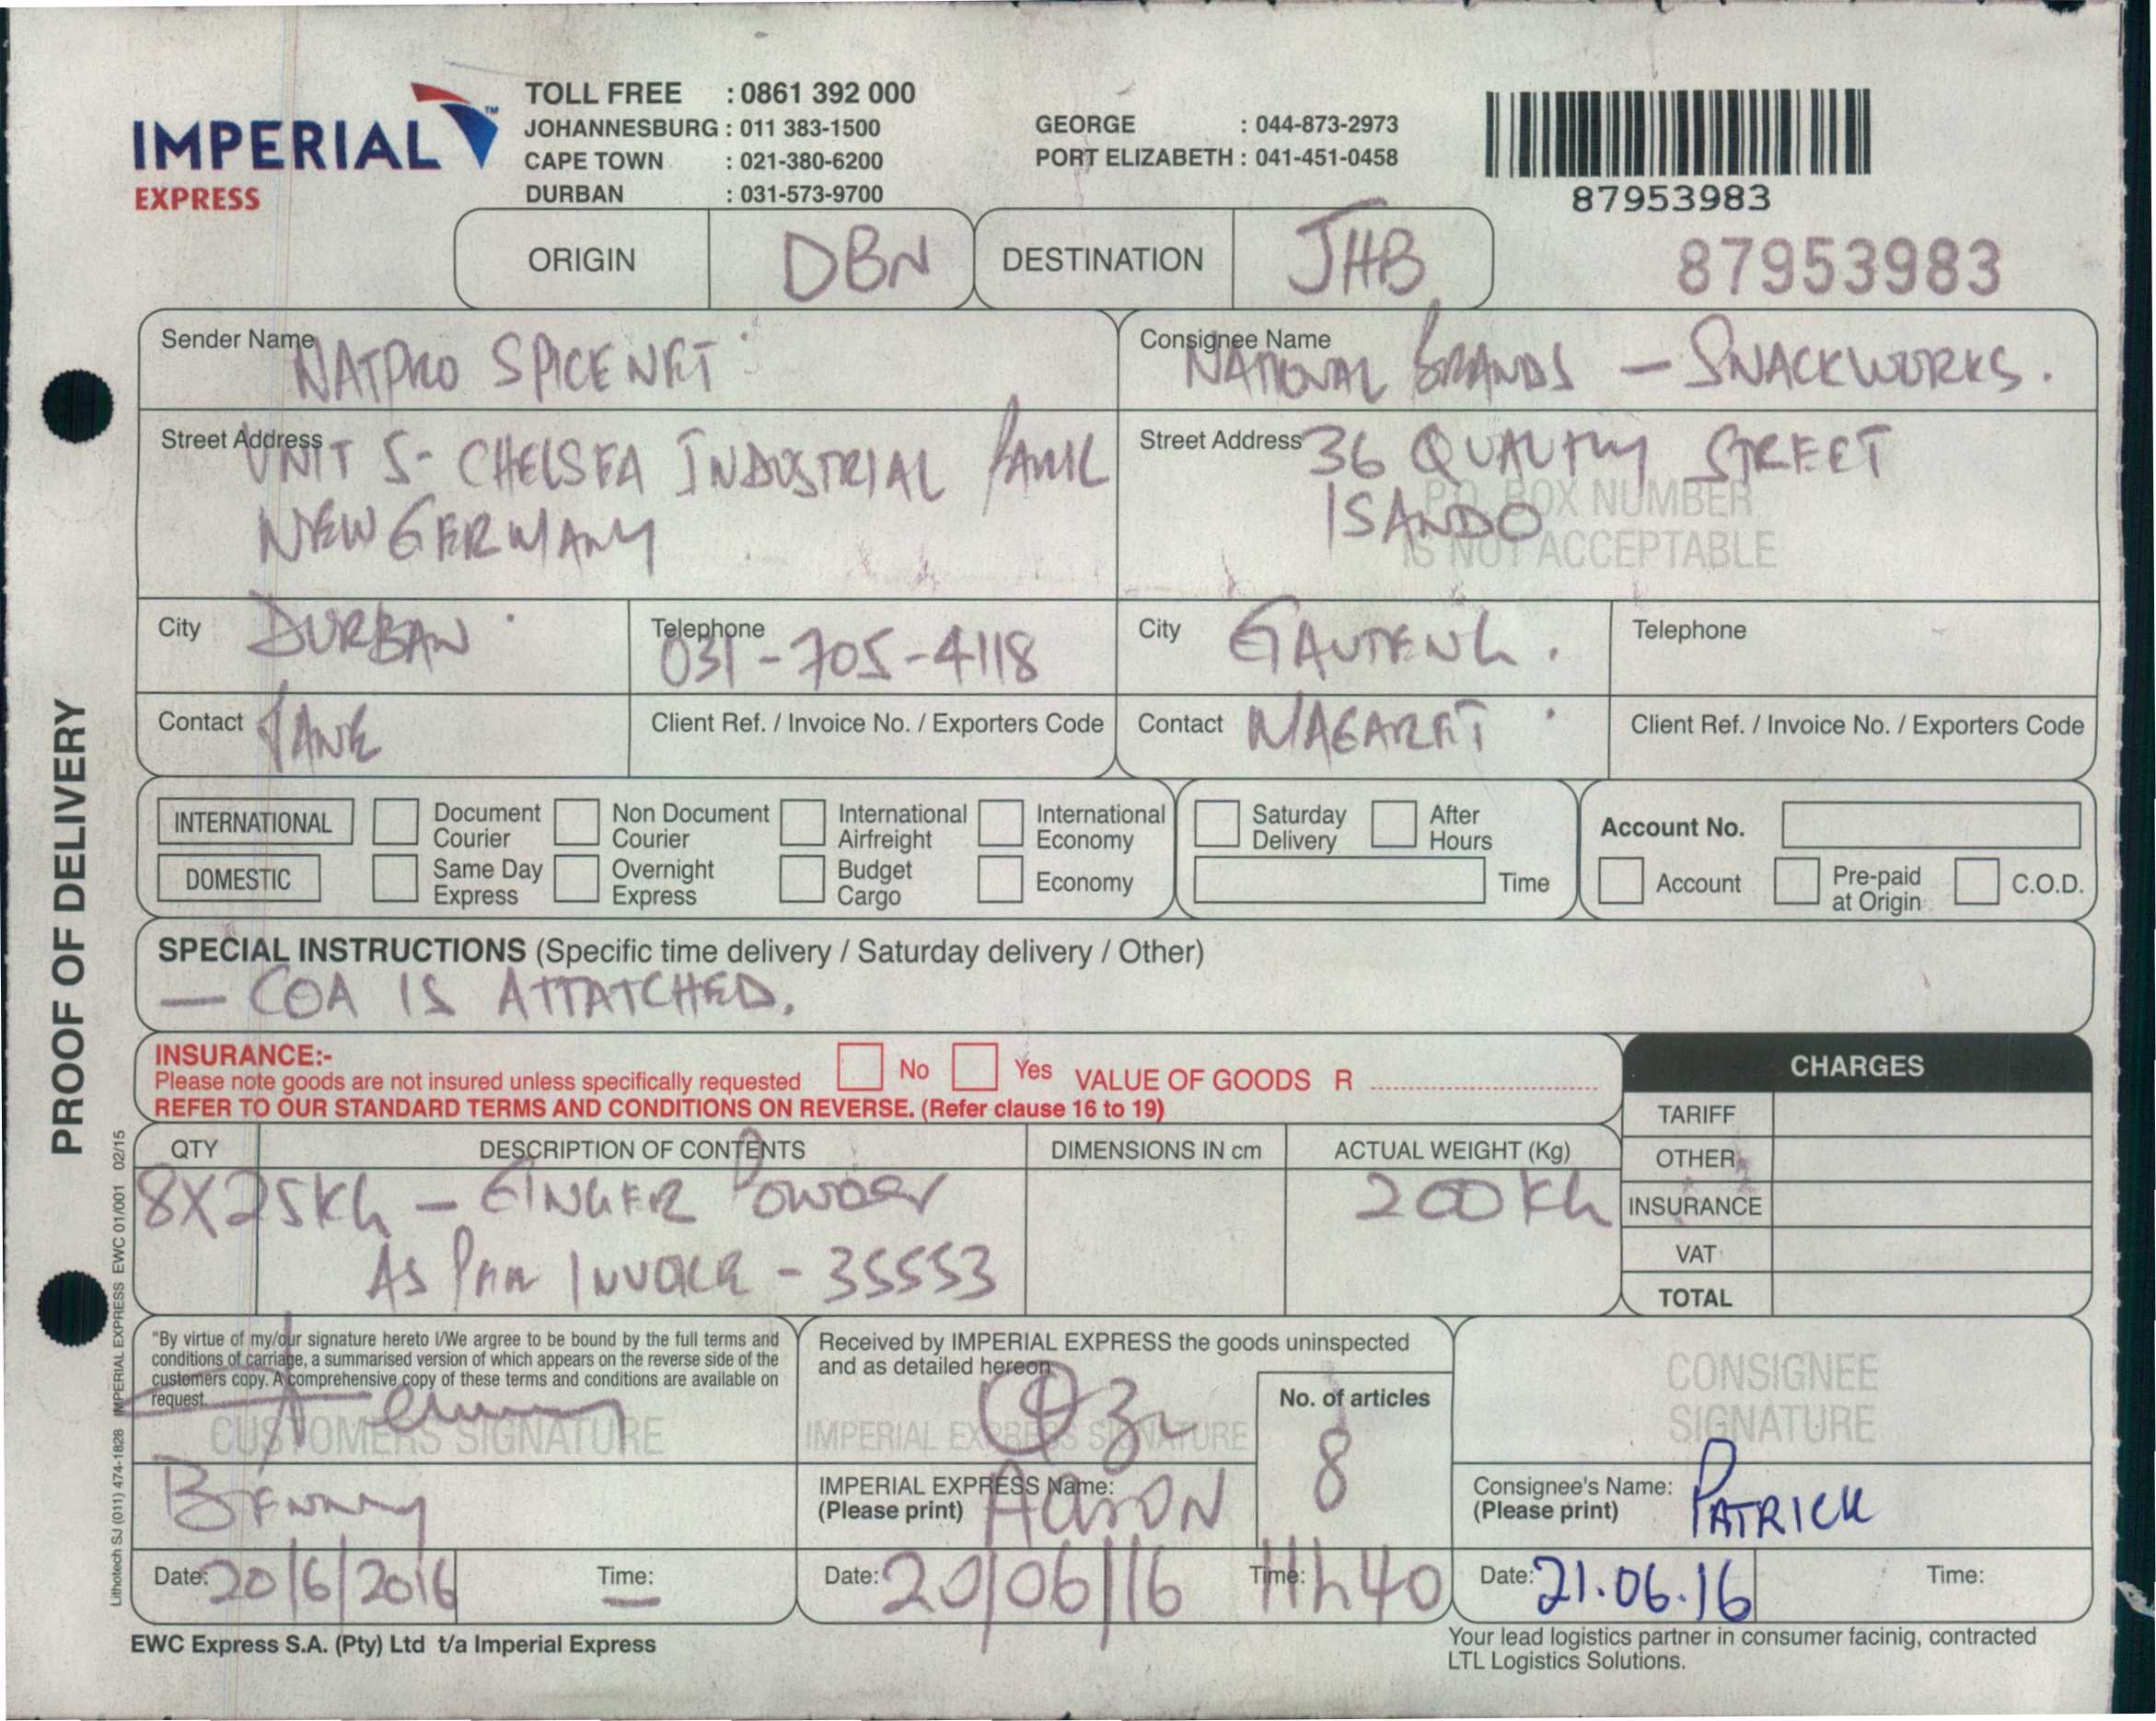 IMPERIAL™
EXPRESS
TOLL FREE : 0861 392 000
JOHANNESBURG : 011 383-1500
CAPE TOWN : 021-380-6200
DURBAN : 031-573-9700
GEORGE : 044-873-2973
PORT ELIZABETH : 041-451-0458
87953983
ORIGIN DBN DESTINATION JHB 87953983
Sender Name NATPRO SPICENET
Consignee Name NATIONAL BRANDS – SNACKWORKS.
Street Address UNIT 5- CHELSEA INDUSTRIAL PARK
NEW GERMANY
Street Address 36 QUALITY STREET
ISANDO
P.O. BOX NUMBER
IS NOT ACCEPTABLE
City DURBAN Telephone 031-705-4118
City GAUTENG. Telephone
Contact JANE Client Ref. / Invoice No. / Exporters Code
Contact MAGARET Client Ref. / Invoice No. / Exporters Code
INTERNATIONAL Document Courier Non Document Courier International Airfreight International Economy
DOMESTIC Same Day Express Overnight Express Budget Cargo Economy
Saturday Delivery After Hours
Time
Account No.
Account Pre-paid at Origin C.O.D.
SPECIAL INSTRUCTIONS (Specific time delivery / Saturday delivery / Other)
— COA IS ATTATCHED.
INSURANCE:-
Please note goods are not insured unless specifically requested No Yes VALUE OF GOODS R
REFER TO OUR STANDARD TERMS AND CONDITIONS ON REVERSE. (Refer clause 16 to 19)
CHARGES
TARIFF
OTHER
INSURANCE
VAT
TOTAL
QTY DESCRIPTION OF CONTENTS DIMENSIONS IN cm ACTUAL WEIGHT (Kg)
8X25KG – GINGER POWDER 200KG
AS PER INVOICE - 35553
"By virtue of my/our signature hereto I/We argree to be bound by the full terms and
conditions of carriage, a summarised version of which appears on the reverse side of the
customers copy. A comprehensive copy of these terms and conditions are available on
request.
CUSTOMERS SIGNATURE
BENNY
Date: 20/6/2016 Time: —
Received by IMPERIAL EXPRESS the goods uninspected
and as detailed hereon
IMPERIAL EXPRESS SIGNATURE
No. of articles
8
IMPERIAL EXPRESS Name:
(Please print) AARON
Date: 20/06/16 Time: 11h40
CONSIGNEE
SIGNATURE
Consignee's Name:
(Please print) PATRICK
Date: 21.06.16 Time:
EWC Express S.A. (Pty) Ltd t/a Imperial Express
Your lead logistics partner in consumer facinig, contracted
LTL Logistics Solutions.
PROOF OF DELIVERY
Lithotech SJ (011) 474-1828 IMPERIAL EXPRESS EWC 01/001 02/15